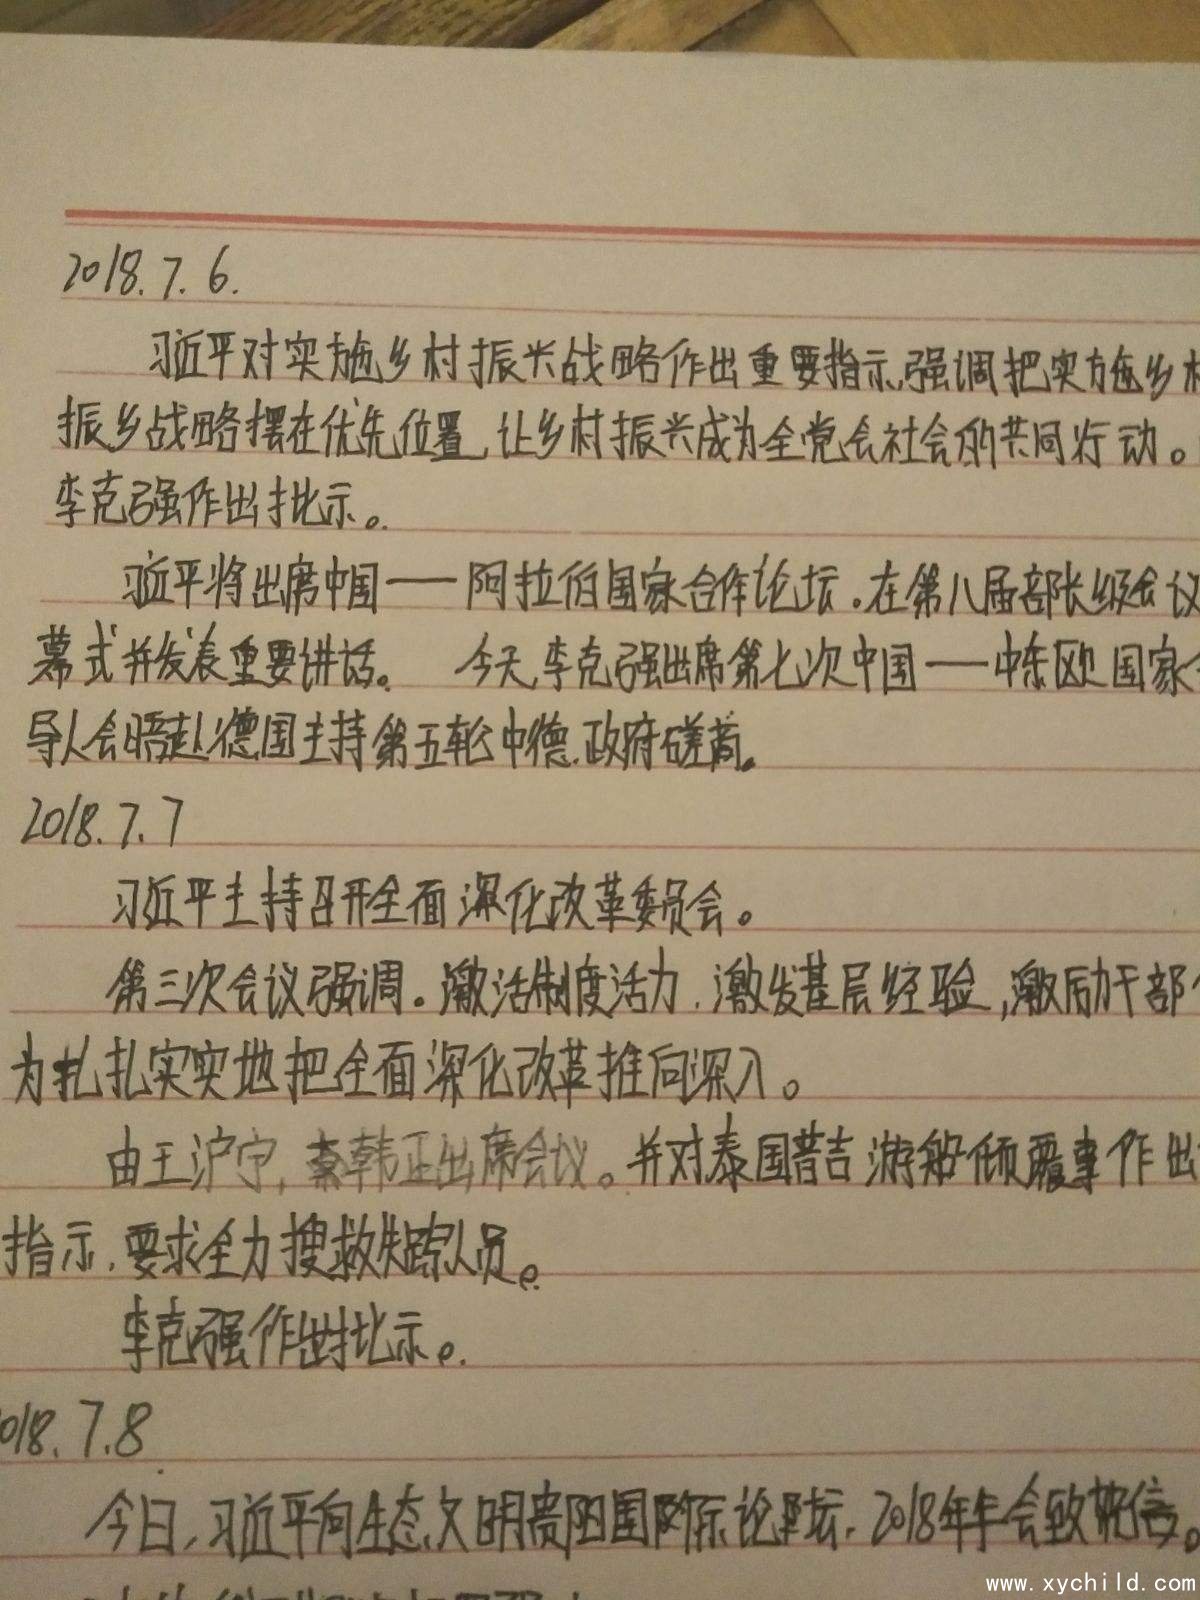 2018.7.6.
习近平对实施乡村振兴战略作出重要指示,强调把实施乡村
振乡战略摆在优先位置,让乡村振兴成为全党会社会的共同行动。
李克强作出批示。
习近平将出席中国——阿拉伯国家合作论坛.在第八届部长级会议
幕式并发表重要讲话。 今天,李克强出席第七次中国——中东欧国家
导人会晤赴德国主持第五轮中德.政府磋商。
2018.7.7
习近平主持召开全面深化改革委员会。
第三次会议强调。激活制度活力.激发基层经验,激励干部
为扎扎实实地把全面深化改革推向深入。
由王沪宁,韩正出席会议。并对泰国普吉游船倾覆事作出
指示.要求全力搜救失踪人员。
李克强作出批示。
018.7.8
今日,习近平向生态文明贵阳国际论坛.2018年年会致贺信。
www.xychild.com